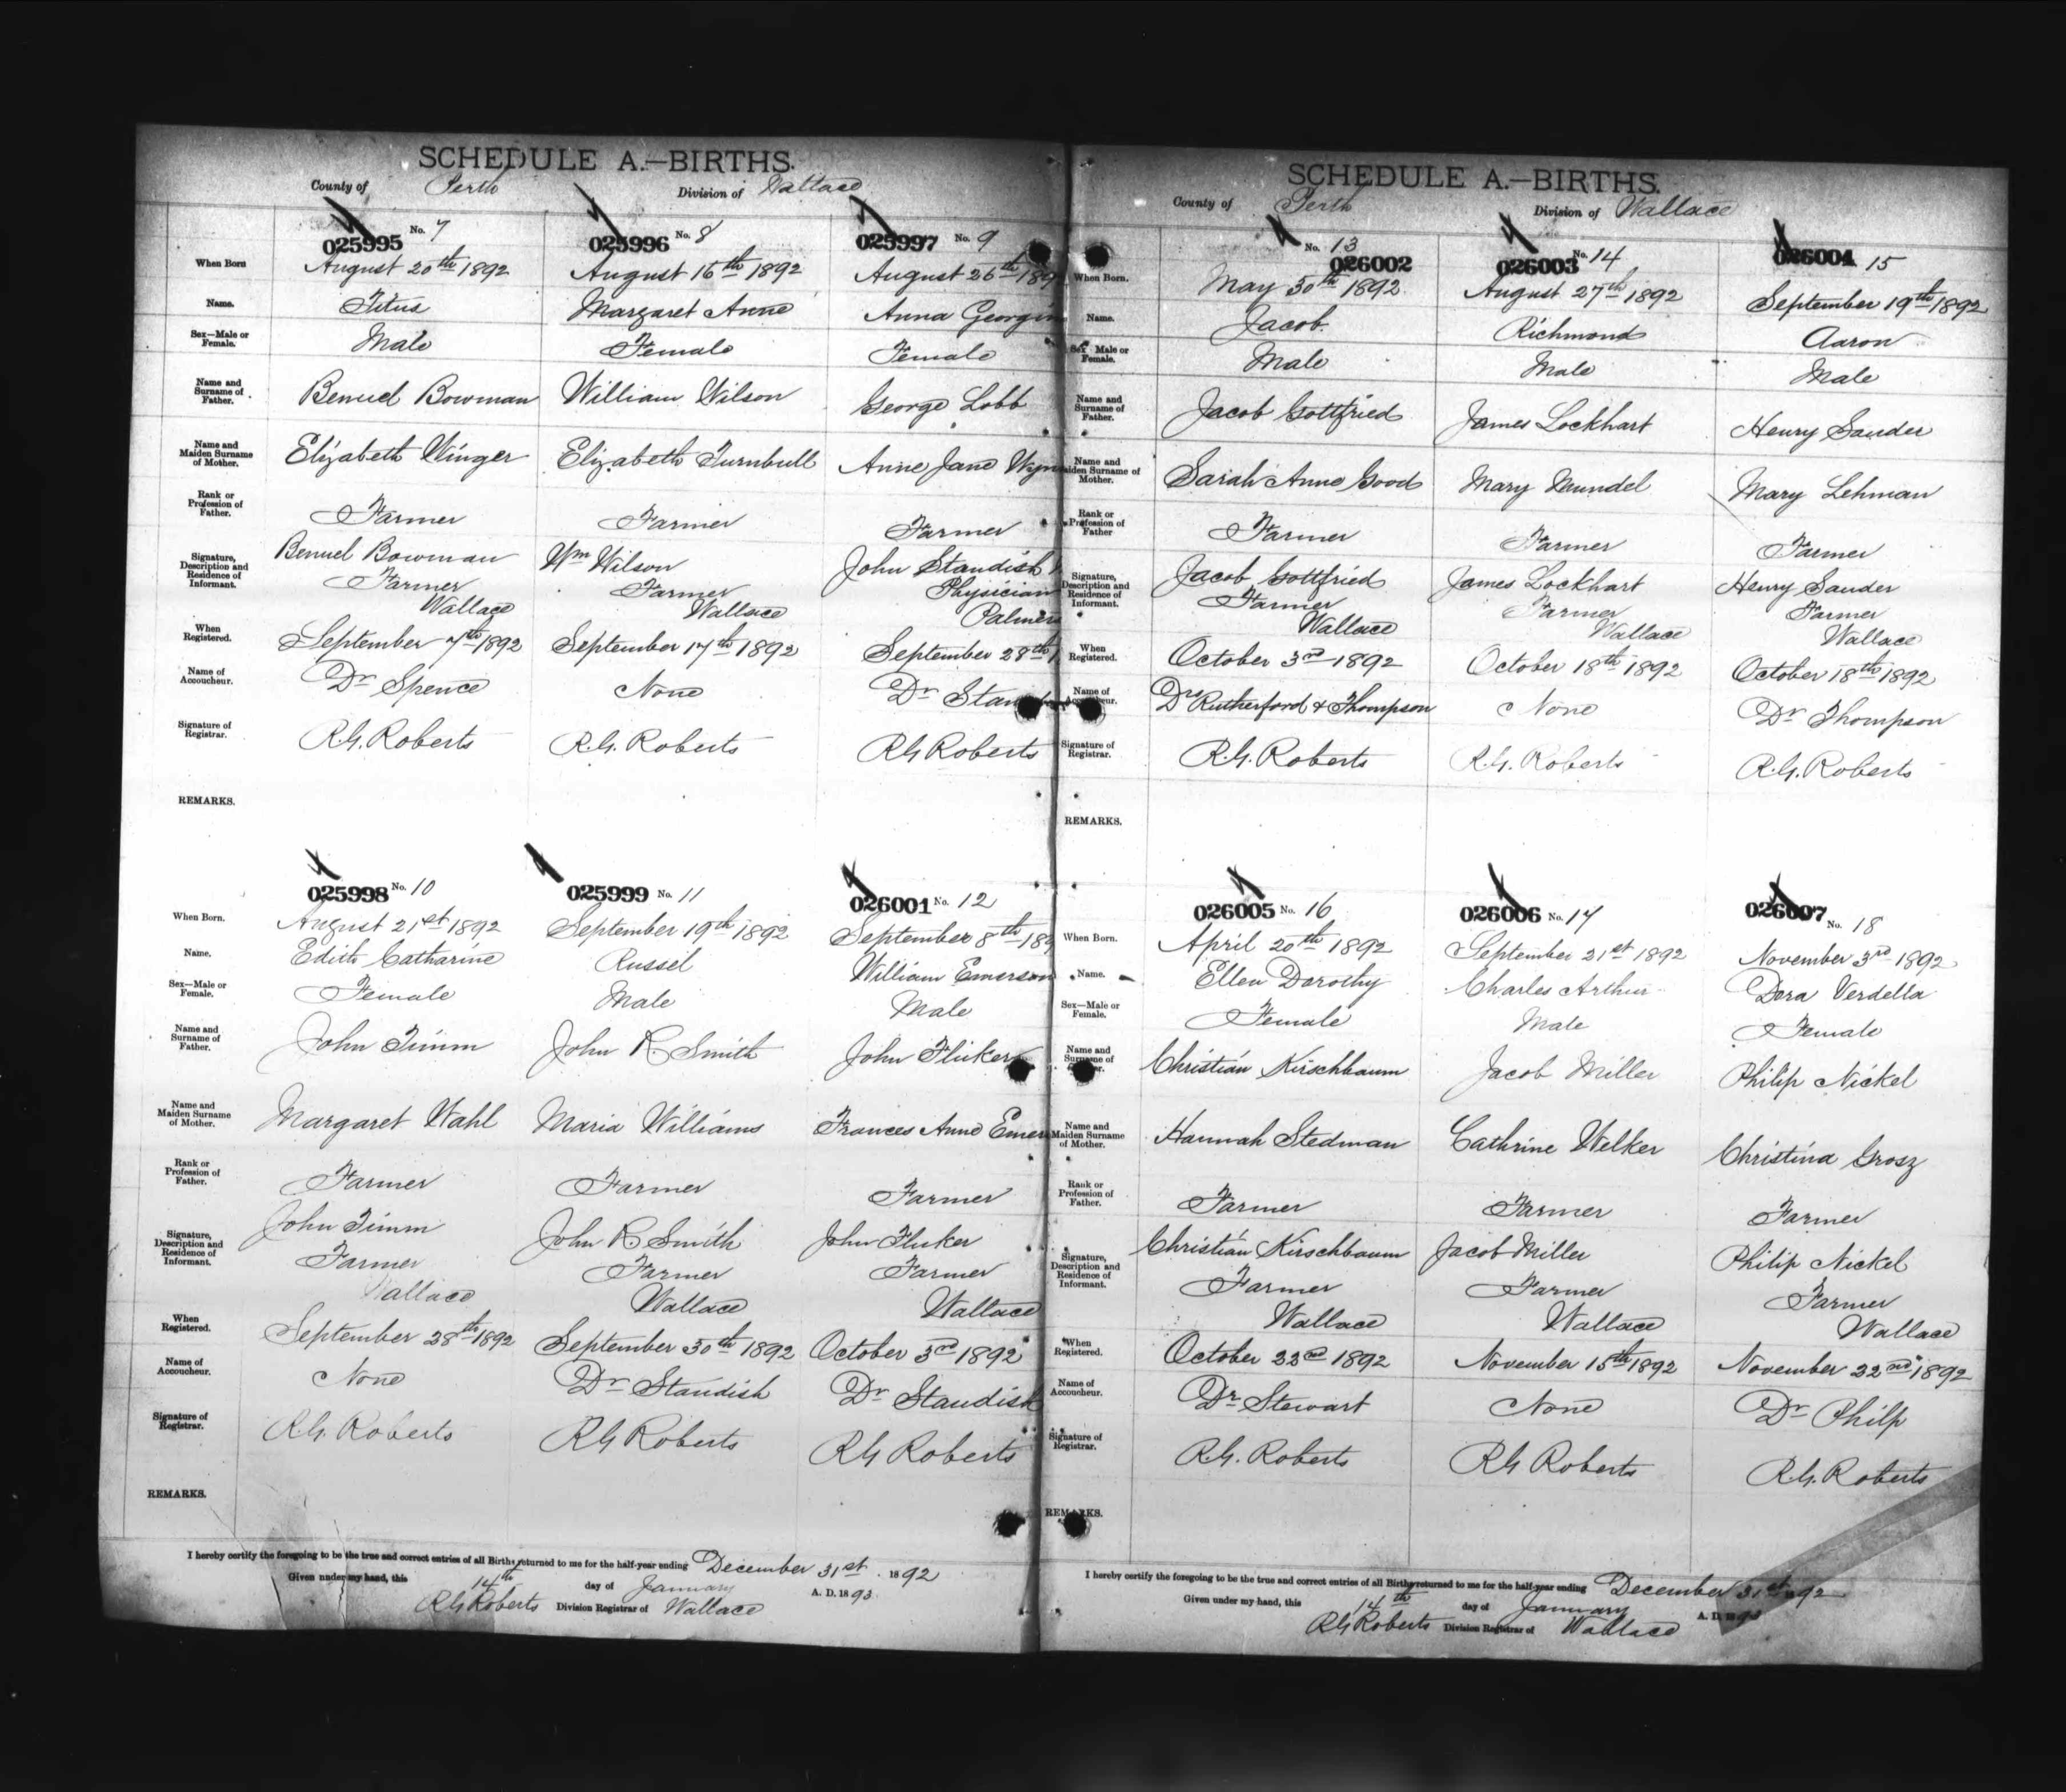 SCHEDULE A.—BIRTHS.
County of Perth Division of Wallace
025995 No. 7 025996 No. 8 025997 No. 9
When Born August 20th 1892 August 16th 1892 August 26th 189
Name. Titus Margaret Anne Anna Georgin
Sex—Male or Female. Male Female Female
Name and Surname of Father. Benuel Bowman William Wilson George Lobb
Name and Maiden Surname of Mother. Elizabeth Winger Elizabeth Turnbull Anne Jane Wyn
Rank or Profession of Father. Farmer Farmer Farmer
Signature, Description and Residence of Informant. Benuel Bowman Wm Wilson John Standish
Farmer Farmer Physician
Wallace Wallace Palmers
When Registered. September 7th 1892 September 17th 1892 September 28th 1
Name of Accoucheur. Dr Spence None Dr Stan
Signature of Registrar. R.G. Roberts R.G. Roberts RG Roberts
REMARKS.
025998 No. 10 025999 No. 11 026001 No. 12
When Born. August 21st 1892 September 19th 1892 September 8th 189
Name. Edith Catharine Russel William Emerson
Sex—Male or Female. Female Male Male
Name and Surname of Father. John Timm John R. Smith John Fluker
Name and Maiden Surname of Mother. Margaret Wahl Maria Williams Frances Anne Emer
Rank or Profession of Father. Farmer Farmer Farmer
Signature, Description and Residence of Informant. John Timm John R Smith John Fluker
Farmer Farmer Farmer
Wallace Wallace Wallace
When Registered. September 28th 1892 September 30th 1892 October 3rd 1892
Name of Accoucheur. None Dr Standish Dr Standish
Signature of Registrar. RG Roberts RG Roberts RG Roberts
REMARKS.
I hereby certify the foregoing to be the true and correct entries of all Births returned to me for the half-year ending December 31st 1892
Given under my hand, this 14th day of January A. D. 1893.
RG Roberts Division Registrar of Wallace
SCHEDULE A.—BIRTHS.
County of Perth Division of Wallace
No. 13 026002 026003 No. 14 026004 15
When Born. May 30th 1892 August 27th 1892 September 19th 1892
Name. Jacob. Richmond Aaron
Sex Male or Female. Male Male Male
Name and Surname of Father. Jacob Gottfried James Lockhart Henry Sauder
Name and Maiden Surname of Mother. Sarah Anne Good Mary Mundel Mary Lehman
Rank or Profession of Father Farmer Farmer Farmer
Signature, Description and Residence of Informant. Jacob Gottfried James Lockhart Henry Sauder
Farmer Farmer Farmer
Wallace Wallace Wallace
When Registered. October 3rd 1892 October 18th 1892 October 18th 1892
Name of Accoucheur. Drs Rutherford & Thompson None Dr Thompson
Signature of Registrar. R.G. Roberts R.G. Roberts R.G. Roberts
REMARKS.
026005 No. 16 026006 No. 17 026007 No. 18
When Born. April 20th 1892 September 21st 1892 November 3rd 1892
Name. Ellen Dorothy Charles Arthur Dora Verdella
Sex—Male or Female. Female Male Female
Name and Surname of Father. Christian Kirschbaum Jacob Miller Philip Nickel
Name and Maiden Surname of Mother. Hannah Stedman Cathrine Welker Christina Grosz
Rank or Profession of Father. Farmer Farmer Farmer
Signature, Description and Residence of Informant. Christian Kirschbaum Jacob Miller Philip Nickel
Farmer Farmer Farmer
Wallace Wallace Wallace
When Registered. October 22nd 1892 November 15th 1892 November 22nd 1892
Name of Accoucheur. Dr Stewart None Dr Philp
Signature of Registrar. R.G. Roberts RG Roberts R.G. Roberts
REMARKS.
I hereby certify the foregoing to be the true and correct entries of all Births returned to me for the half-year ending December 31st 1892
Given under my hand, this 14th day of January A. D. 1893
RG Roberts Division Registrar of Wallace